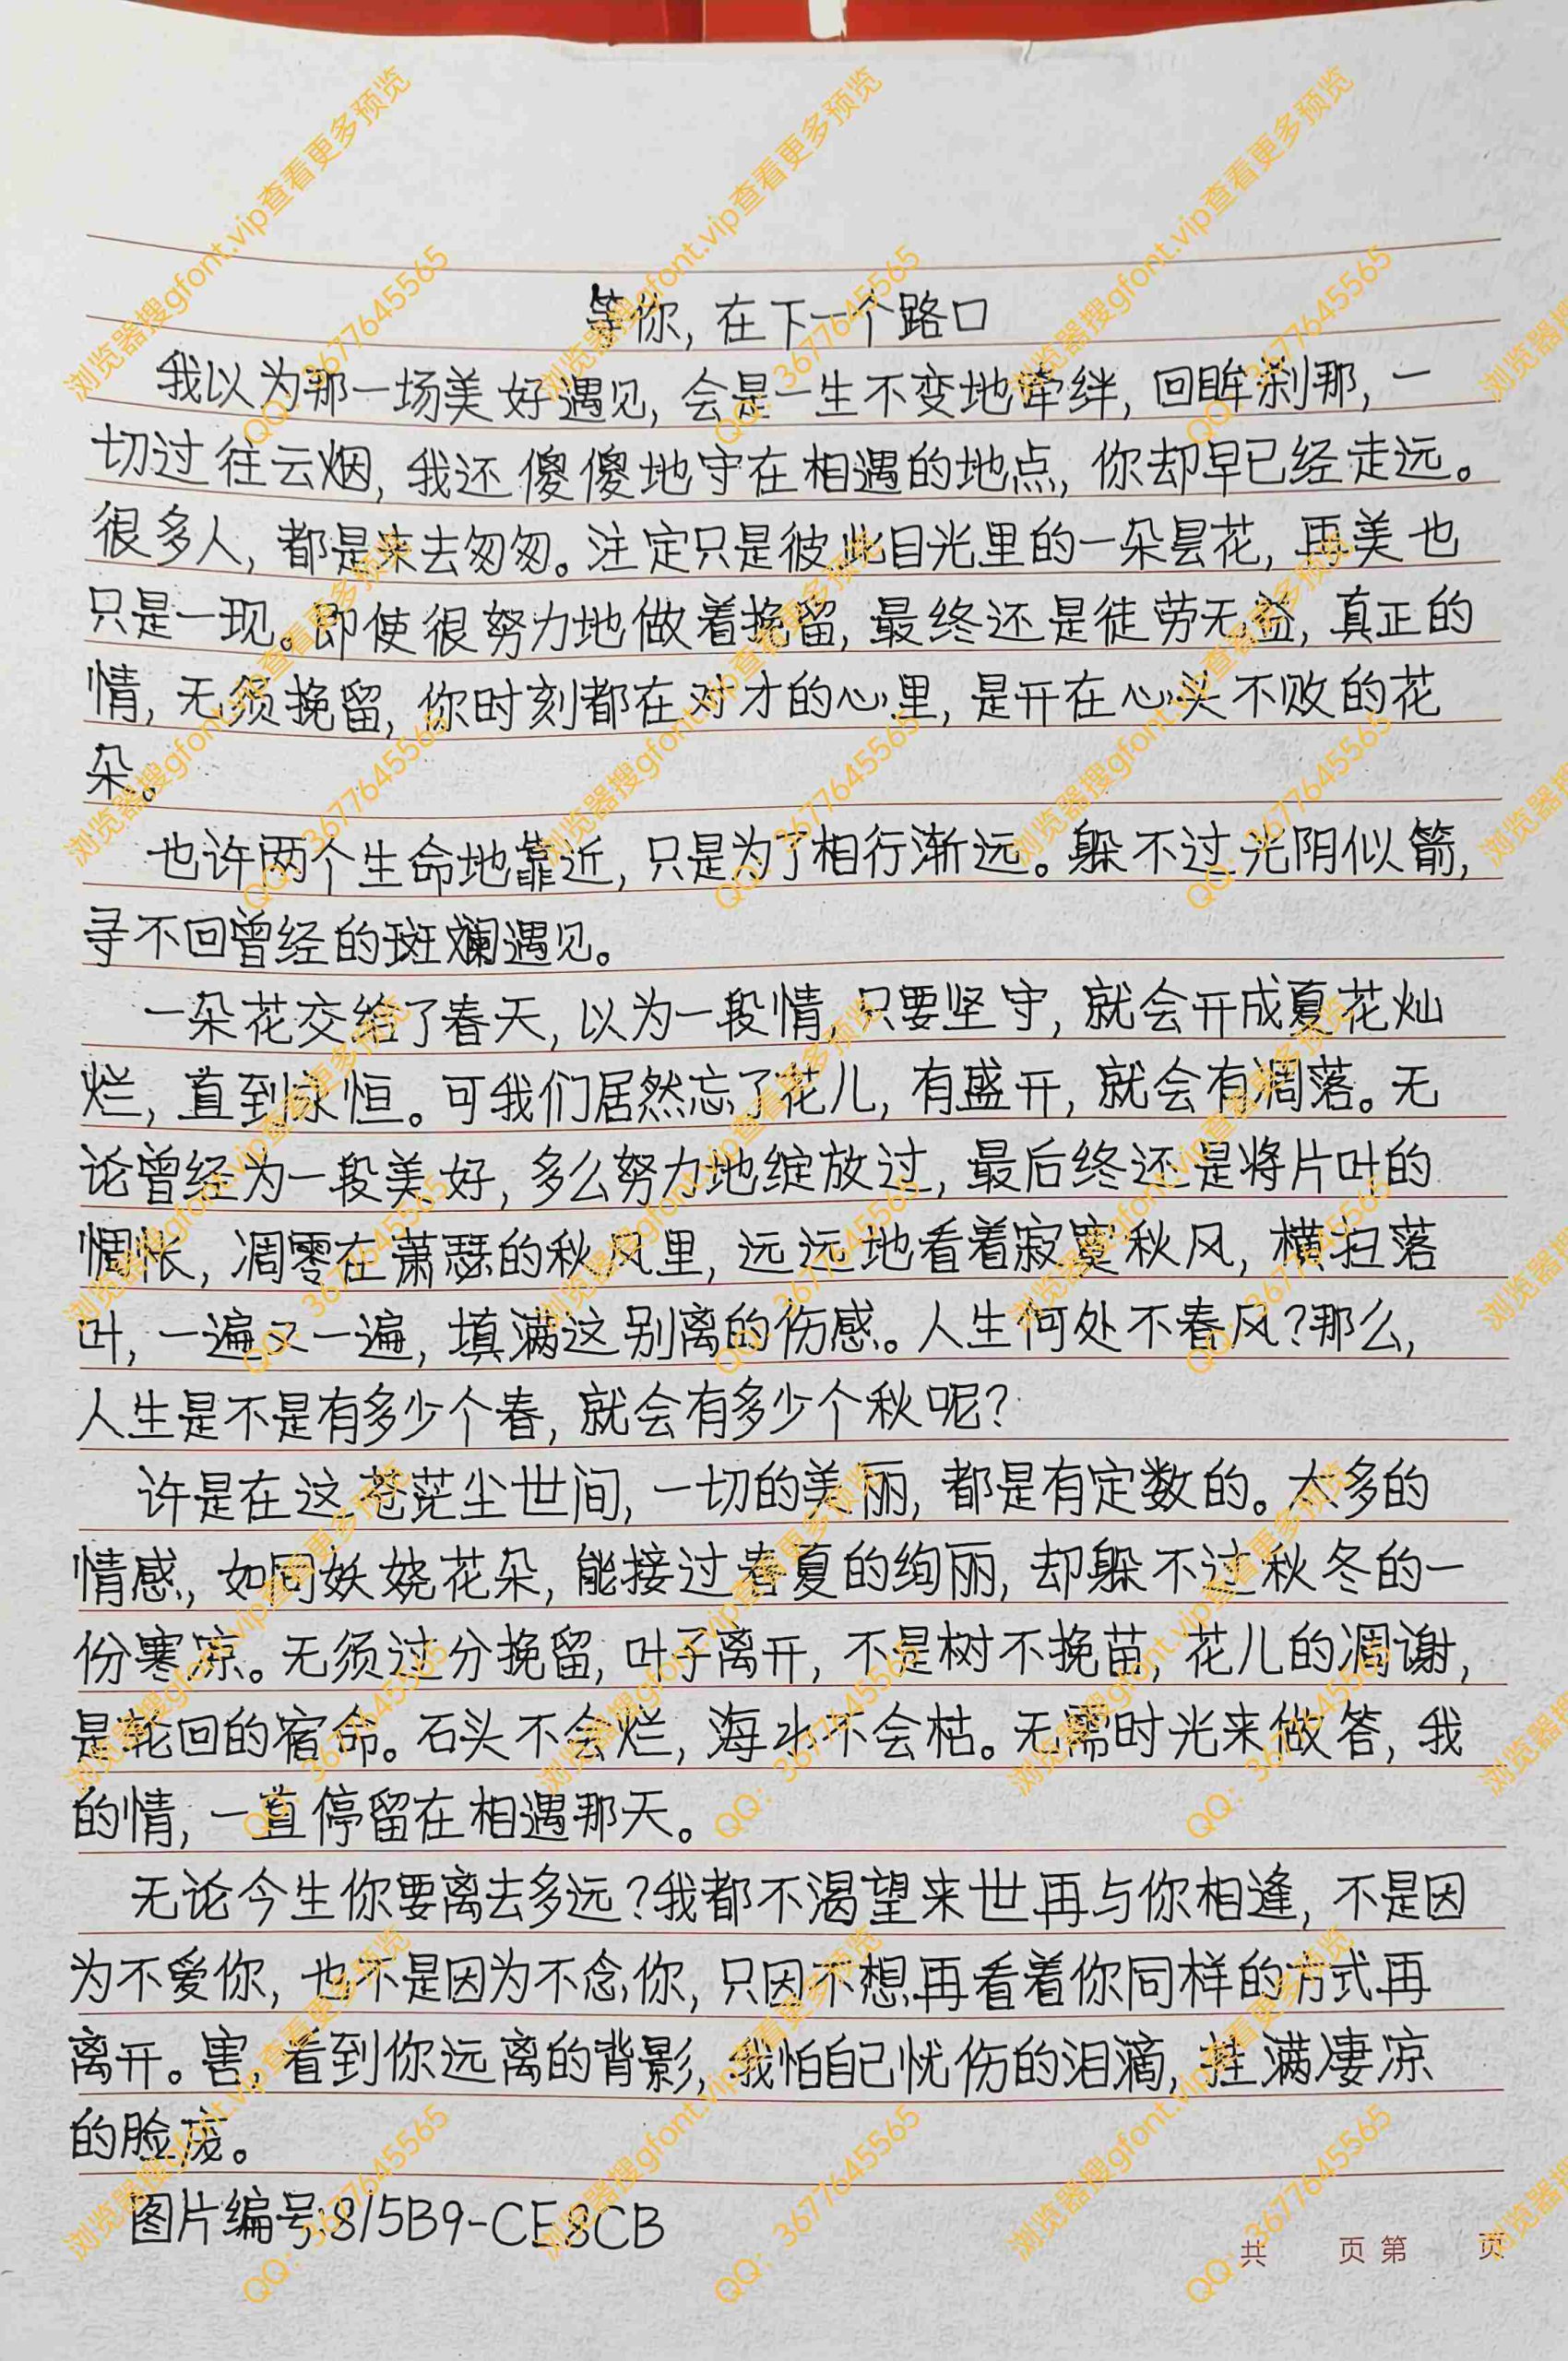 等你,在下一个路口
我以为那一场美好遇见,会是一生不变地牵绊,回眸刹那,一
切过往云烟,我还傻傻地守在相遇的地点,你却早已经走远。
很多人,都是来去匆匆。注定只是彼此目光里的一朵昙花,再美也
只是一现。即使很努力地做着挽留,最终还是徒劳无益,真正的
情,无须挽留,你时刻都在对才的心里,是开在心头不败的花
朵。
也许两个生命地靠近,只是为了相行渐远。躲不过光阴似箭,
寻不回曾经的斑斓遇见。
一朵花交给了春天,以为一段情,只要坚守,就会开成夏花灿
烂,直到永恒。可我们居然忘了花儿,有盛开,就会有凋落。无
论曾经为一段美好,多么努力地绽放过,最后终还是将片叶的
惆怅,凋零在萧瑟的秋风里,远远地看着寂寞秋风,横扫落
叶,一遍又一遍,填满这别离的伤感。人生何处不春风?那么,
人生是不是有多少个春,就会有多少个秋呢?
许是在这苍茫尘世间,一切的美丽,都是有定数的。太多的
情感,如同妖娆花朵,能接过春夏的绚丽,却躲不过秋冬的一
份寒凉。无须过分挽留,叶子离开,不是树不挽苗,花儿的凋谢,
是轮回的宿命。石头不会烂,海水不会枯。无需时光来做答,我
的情,一直停留在相遇那天。
无论今生你要离去多远?我都不渴望来世再与你相逢,不是因
为不爱你,也不是因为不念你,只因不想再看着你同样的方式再
离开。害,看到你远离的背影,我怕自己忧伤的泪滴,挂满凄凉
的脸庞。
图片编号:815B9-CE8CB
共 页 第 页
浏览器搜gfont.vip查看更多预览
QQ：3677645565